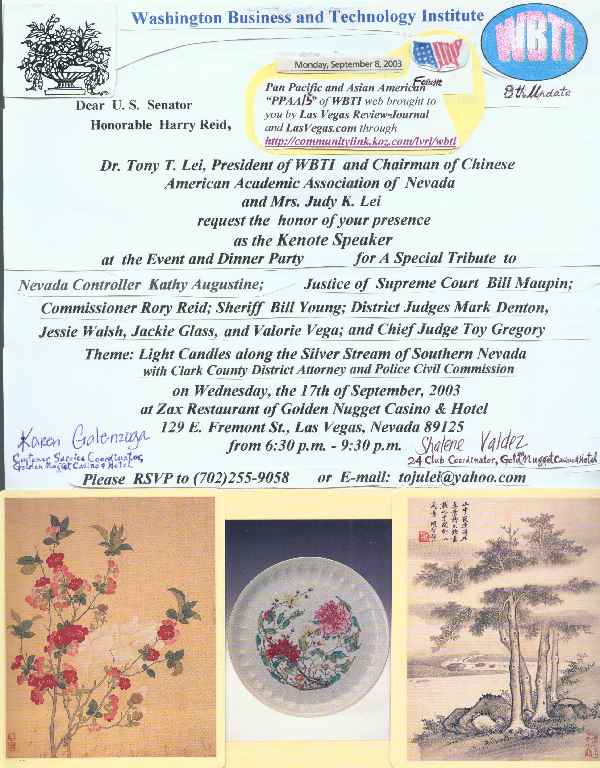 Washington Business and Technology Institute
WBTI
Monday, September 8, 2003
8th Update
Pan Pacific and Asian American Forum
"PPAAIS" of WBTI web brought to
you by Las Vegas Review-Journal
and LasVegas.com through
http://communitylink.koz.com/lvrj/wbti
Dear U. S. Senator
Honorable Harry Reid,
Dr. Tony T. Lei, President of WBTI and Chairman of Chinese
American Academic Association of Nevada
and Mrs. Judy K. Lei
request the honor of your presence
as the Kenote Speaker
at the Event and Dinner Party for A Special Tribute to
Nevada Controller Kathy Augustine; Justice of Supreme Court Bill Maupin;
Commissioner Rory Reid; Sheriff Bill Young; District Judges Mark Denton,
Jessie Walsh, Jackie Glass, and Valorie Vega; and Chief Judge Toy Gregory
Theme: Light Candles along the Silver Stream of Southern Nevada
with Clark County District Attorney and Police Civil Commission
on Wednesday, the 17th of September, 2003
at Zax Restaurant of Golden Nugget Casino & Hotel
129 E. Fremont St., Las Vegas, Nevada 89125
from 6:30 p.m. - 9:30 p.m.
Karen Galenzoga
Customer Service Coordinator,
Golden Nugget Casino & Hotel
Shalene Valdez
24 Club Coordinator, Golden Nugget Casino & Hotel
Please RSVP to (702)255-9058 or E-mail: tojulei@yahoo.com